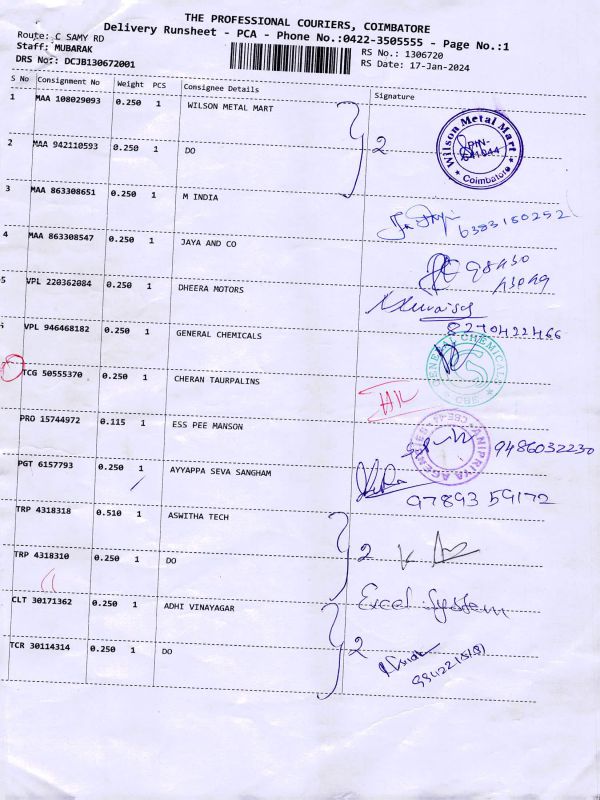 THE PROFESSIONAL COURIERS, COIMBATORE
Delivery Runsheet - PCA - Phone No.:0422-3505555 - Page No.:1
Route: C SAMY RD
Staff: MUBARAK
DRS No: DCJB130672001
RS No.: 1306720
RS Date: 17-Jan-2024
S No Consignment No Weight PCS Consignee Details Signature
1 MAA 108029093 0.250 1 WILSON METAL MART
Wilson Metal Mart
PIN-
641044
Coimbatore
2 MAA 942110593 0.250 1 DO 2
3 MAA 863308651 0.250 1 M INDIA
6383150252
4 MAA 863308547 0.250 1 JAYA AND CO
5 VPL 220362084 0.250 1 DHEERA MOTORS
8270422466
VPL 946468182 0.250 1 GENERAL CHEMICALS
GENERAL CHEMICALS
CBE
TCG 50555370 0.250 1 CHERAN TAURPALINS
PRO 15744972 0.115 1 ESS PEE MANSON
9486032230
PGT 6157793 0.250 1 AYYAPPA SEVA SANGHAM
97893 59172
TRP 4318318 0.510 1 ASWITHA TECH
TRP 4318310 0.250 1 DO 2
CLT 30171362 0.250 1 ADHI VINAYAGAR
Excel System
TCR 30114314 0.250 1 DO 2